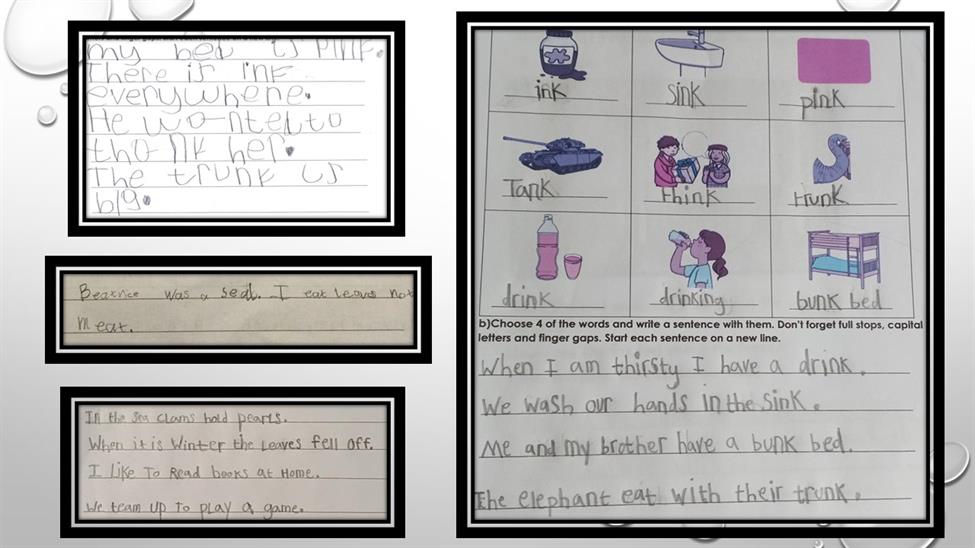 my bed is pink.
There is ink
everywhere.
He wanted to
thank her.
The trunk is
big.
Beatrice was a seal. I eat leaves not
meat.
In the sea clams hold pearls.
When it is Winter the Leaves fell off.
I Like To Read books at Home.
We team up To play a game.
ink sink pink
Tank think trunk
drink drinking bunk bed
b)Choose 4 of the words and write a sentence with them. Don't forget full stops, capital
letters and finger gaps. Start each sentence on a new line.
When I am thirsty I have a drink.
We wash our hands in the sink.
Me and my brother have a bunk bed.
The elephant eat with their trunk.